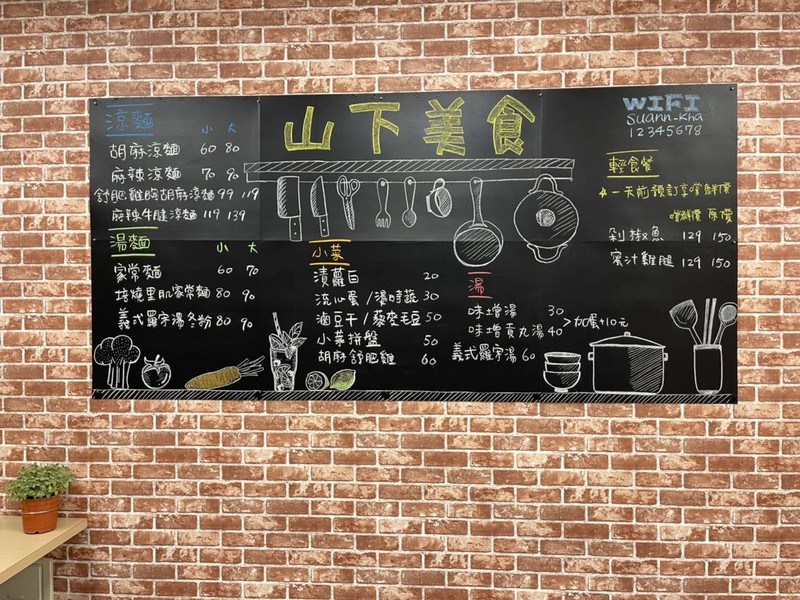 山下美食
涼麵 小 大
胡麻涼麵 60 80
麻辣涼麵 70 90
舒肥雞胸胡麻涼麵 99 119
麻辣牛腱涼麵 119 139
湯麵 小 大
家常麵 60 70
燒里肌家常麵 80 90
義式羅宋湯冬粉 80 90
小菜
漬蘿白 20
流心蛋/燙時蔬 30
滷豆干/藜麥毛豆 50
小菜拼盤 50
胡麻舒肥雞 60
湯
味增湯 30
味增貢丸湯 40 >加蛋+10元
義式羅宋湯 60
WIFI
suann-kha
12345678
輕食餐
一天前預訂享嚐鮮價
嚐鮮價 原價
剁椒魚 129 150
蜜汁雞腿 129 150